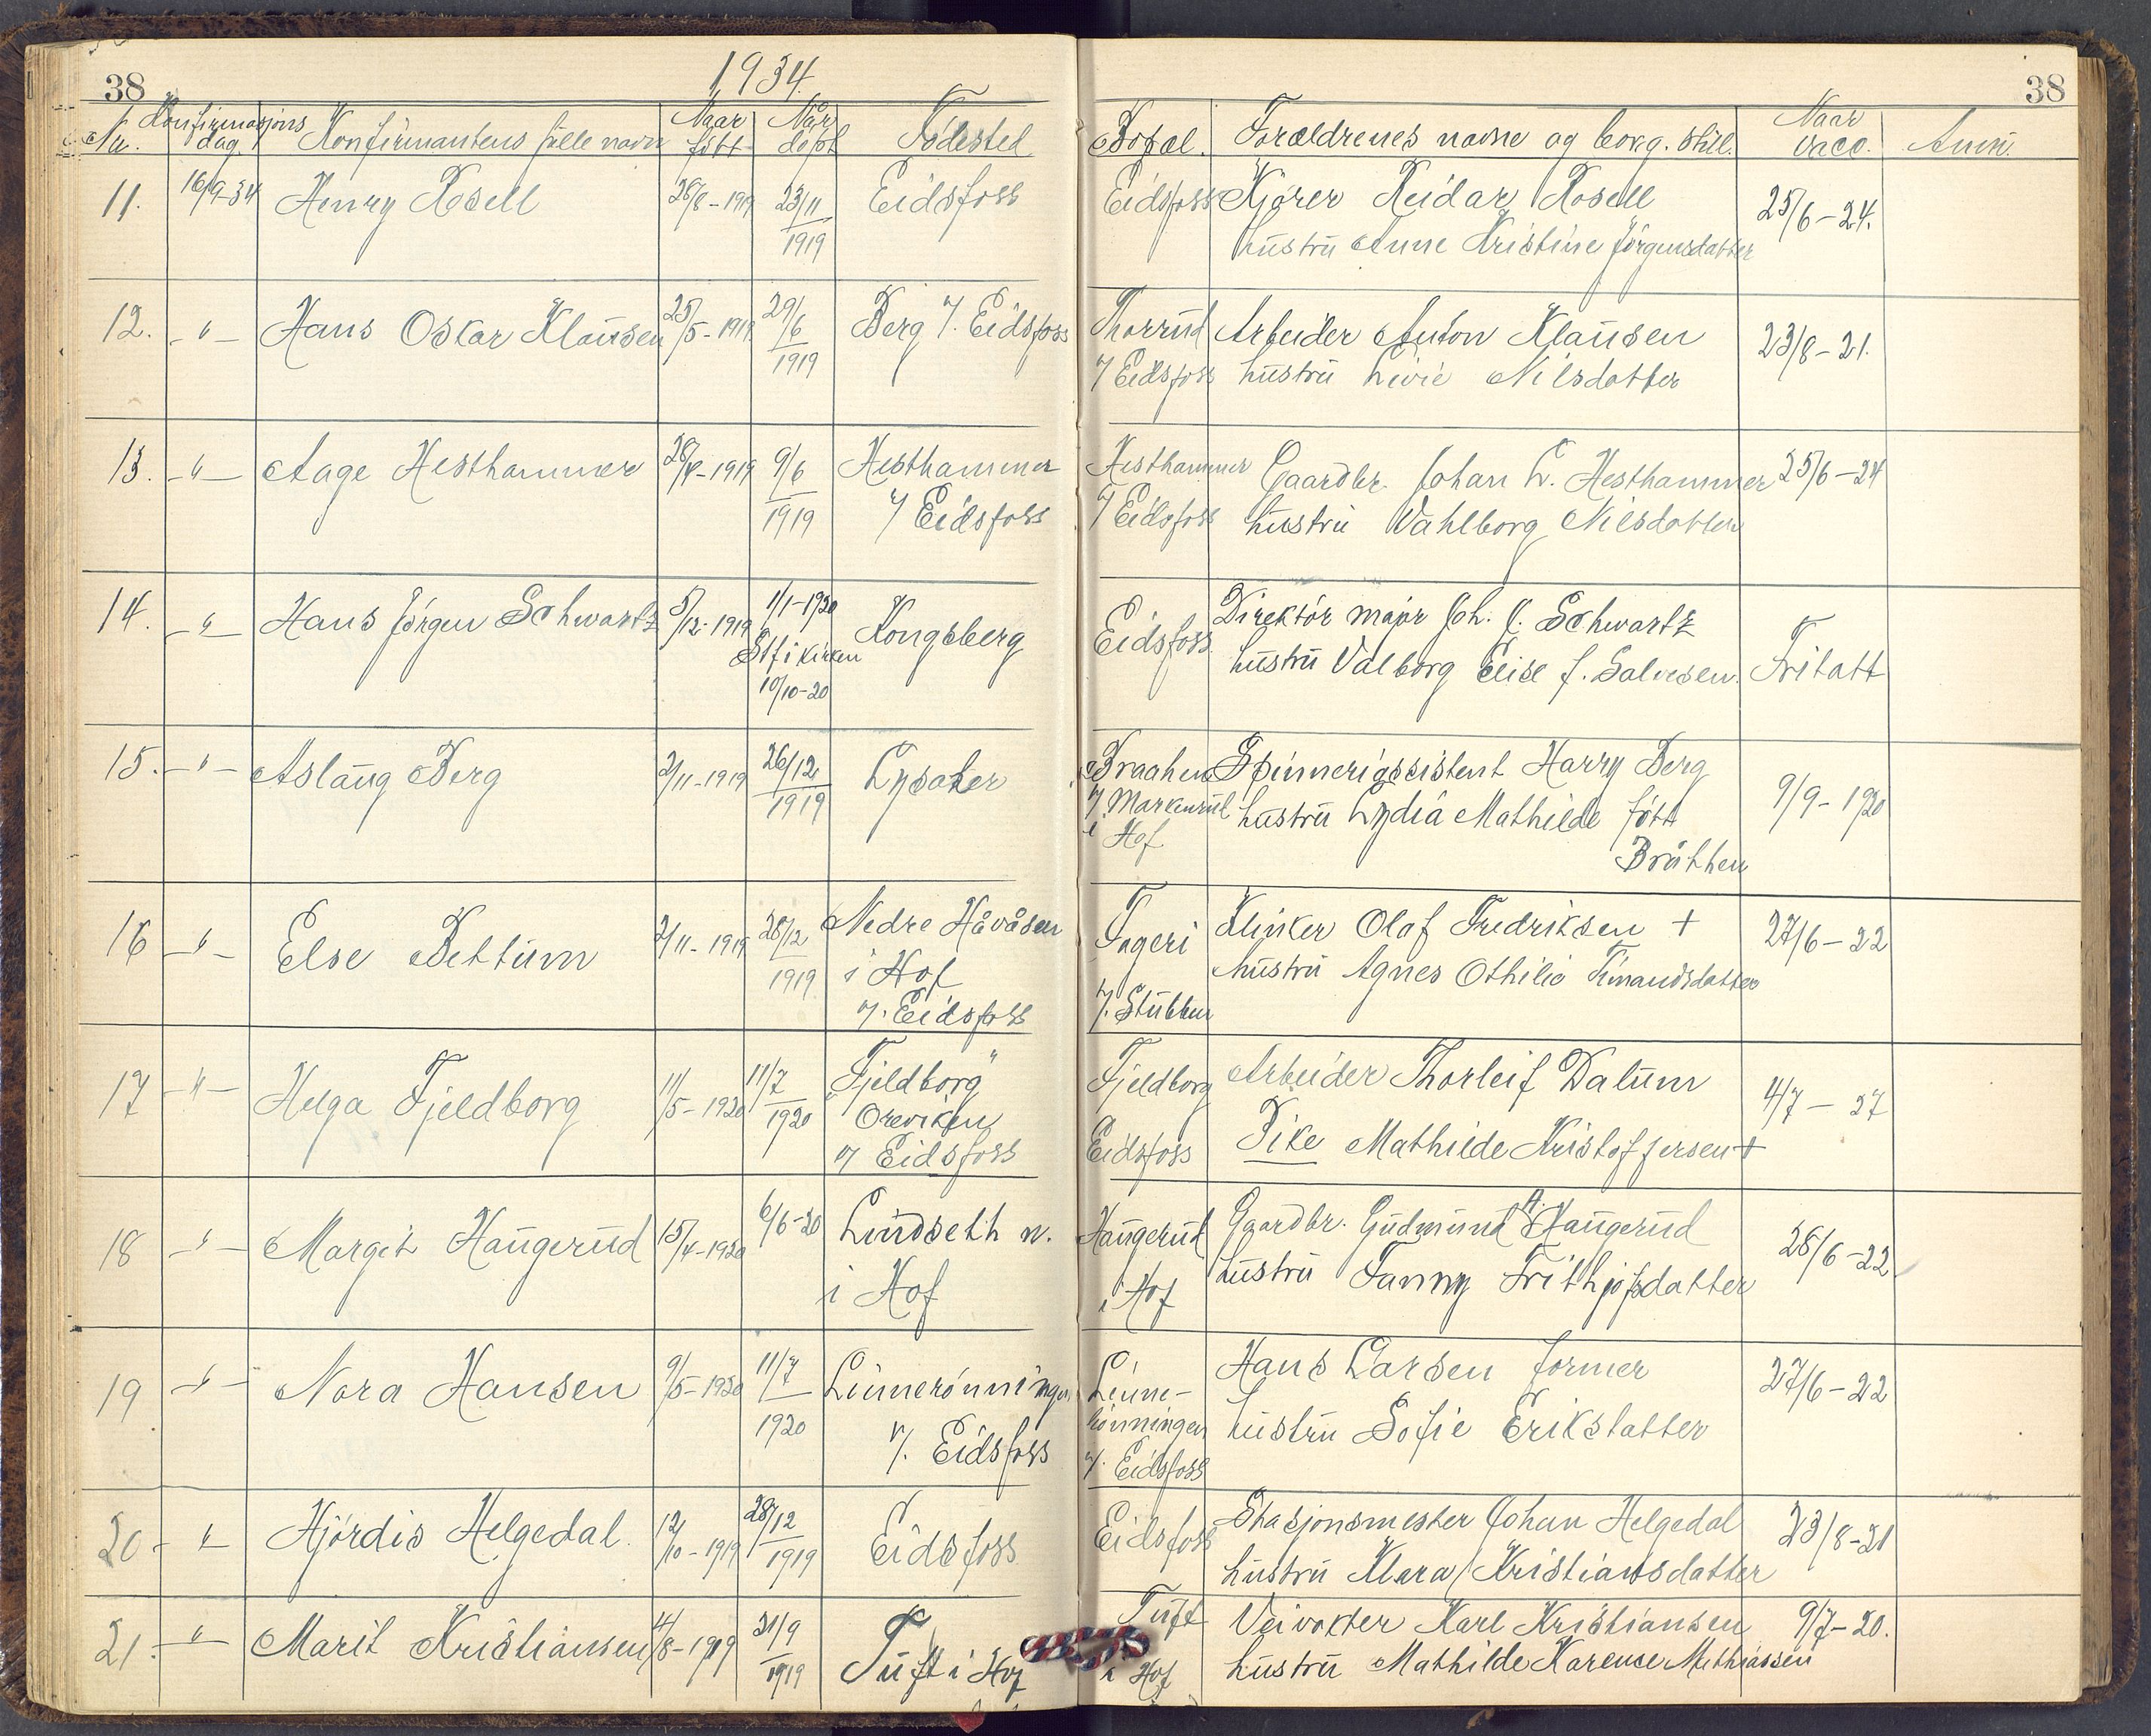 38
1934.
38
Nr. Konfirmasjons dag. Konfirmantens fulle navn Naar født Når døbt Fødested Bopæl. Forældrenes navne og borg. still. Naar vacc. Anm.
11. 16/9-34 Henry Rosell 28/8-1919 23/11 1919 Eidsfoss Eidsfoss Kjører Reidar Rosell 25/6-24.
hustru Anne Kristine Jörgensdatter
12. -"- Hans Oskar Klausen 25/5-1919 29/6 1919 Berg v. Eidsfoss Thorrud Arbeider Anton Klausen 23/8-21.
v Eidsfoss hustru Livie Nilsdatter
13. -"- Aage Hesthammer 28/4-1919 9/6 1919 Hesthammer Hesthammer Gaardbr. Johan L. Hesthammer 25/6-24
v Eidsfoss v Eidsfoss hustru Wahlborg Nilsdatter
14. -"- Hans Jörgen Schwartz 5/12-1919 1/1-1920 Stf i kirken 10/10-20 Kongsberg Eidsfoss Direktör major Joh. J. Schwartz Fritatt
hustru Valborg Elise f. Salvesen.
15. -"- Aslaug Berg 2/11-1919 26/12 1919 Lysaker Braahen Spinneriassistent Harry Berg 9/9-1920
v. Markerud hustru Lydia Mathilde fött
i Hof Bråthen
16 -"- Else Bettum 2/11-1919 28/12 1919 Nedre Håvåsen Fageri Klinker Olaf Fredriksen + 27/6-22
i Hof hustru Agnes Othilie
v. Eidsfoss v. Stubben
17 -"- Helga Fjeldborg 11/5-1920 11/7 1920 "Fjeldborg" Fjeldborg Arbeider Thorleif Dalum 4/7-27
Oreviken
v Eidsfoss Eidsfoss Pike Mathilde Kristoffersen +
18 -"- Margit Haugerud 15/4-1920 6/6-20 Lindseth n. Haugerud Gaardbr. Gudmund A. Haugerud 28/6-22
i Hof i Hof hustru Fanny Frithjofsdatter
19 -"- Nora Hansen 9/5-1920 11/7 1920 Linnerönningen Linne- Hans Larsen former 27/6-22
rönningen hustru Sofie Erikstatter
v. Eidsfoss v. Eidsfoss
20 -"- Hjördis Helgedal. 12/10-1919 28/12 1919 Eidsfoss Eidsfoss Stasjonsmester Johan Helgedal 23/8-21
hustru Klara Kristiansdatter
21. -"- Marit Kristiansen 14/8-1919 21/9 1919 Tuft i Hof Tuft Veivokter Karl Kristiansen 9/7-20.
i Hof hustru Mathilde Karence Mathiassen